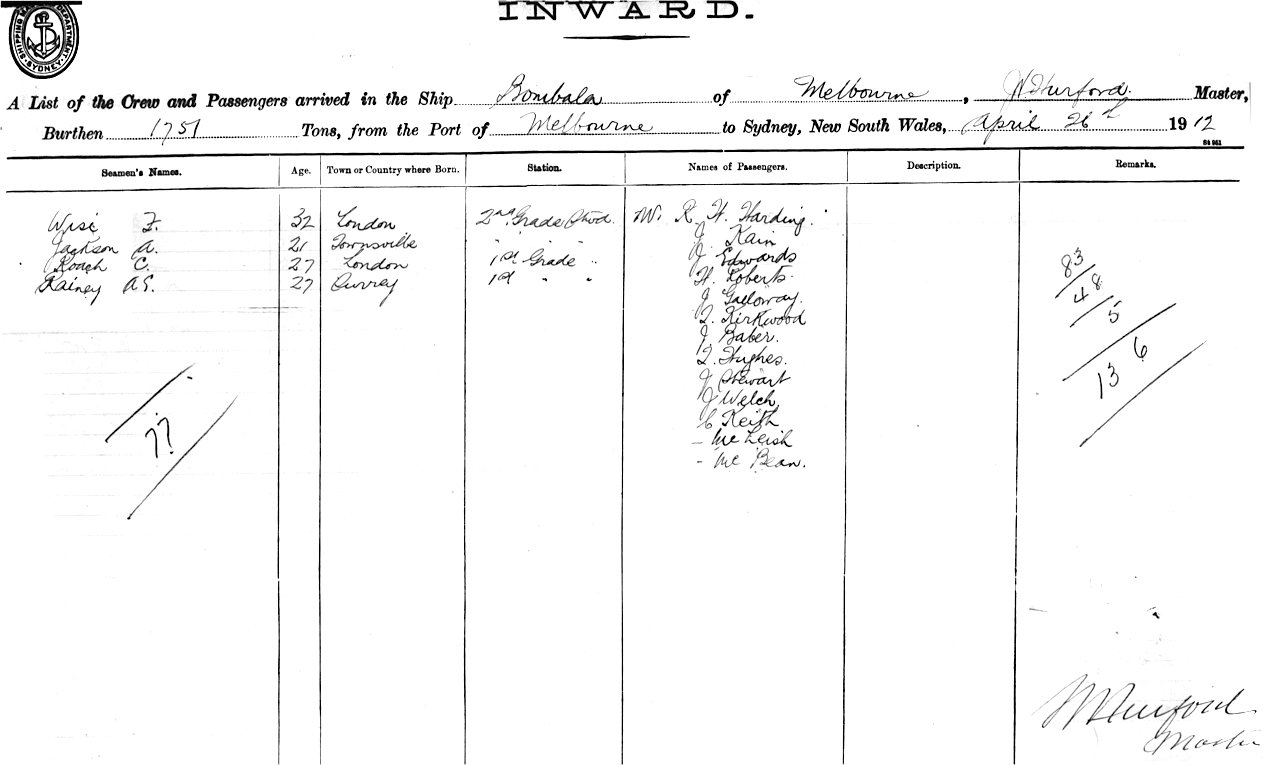 INWARD.
SYDNEY.
A List of the Crew and Passengers arrived in the Ship Bombala of Melbourne, Hurford. Master,
Burthen 1751 Tons, from the Port of Melbourne to Sydney, New South Wales, April 26th 1912
Seamen's Names. Age. Town or Country where Born. Station. Names of Passengers. Description. Remarks.
Wise F. 32 London 2nd Grade Stwd. Mr. R. H. Harding.
Jackson A. 21 Townsville 1st Grade " J. Kain
Roach C. 27 London 1st " " J. Edwards
Rainey A.E. 27 Surrey H. Roberts.
J. Galloway.
T. Kirkwood
J. Baber.
T. Hughes.
J. Stewart
J. Welch
C. Keith
- McLeish
- McBean.
83
48
5
136
77
Hurford
Master